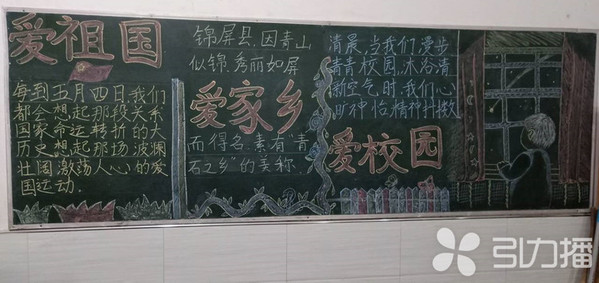 爱祖国
每到五月四日,我们
都会想起那段关系
国家命运转折的大
历史想起那场波澜
壮阔激荡人心的爱
国运动.
锦屏县,因青山
似锦,秀丽如屏
爱家乡
而得名,素有"青
石之乡"的美称.
清晨,当我们漫步
青青校园,沐浴清
新空气时,我们心
旷神怡精神抖擞
爱校园
引力播